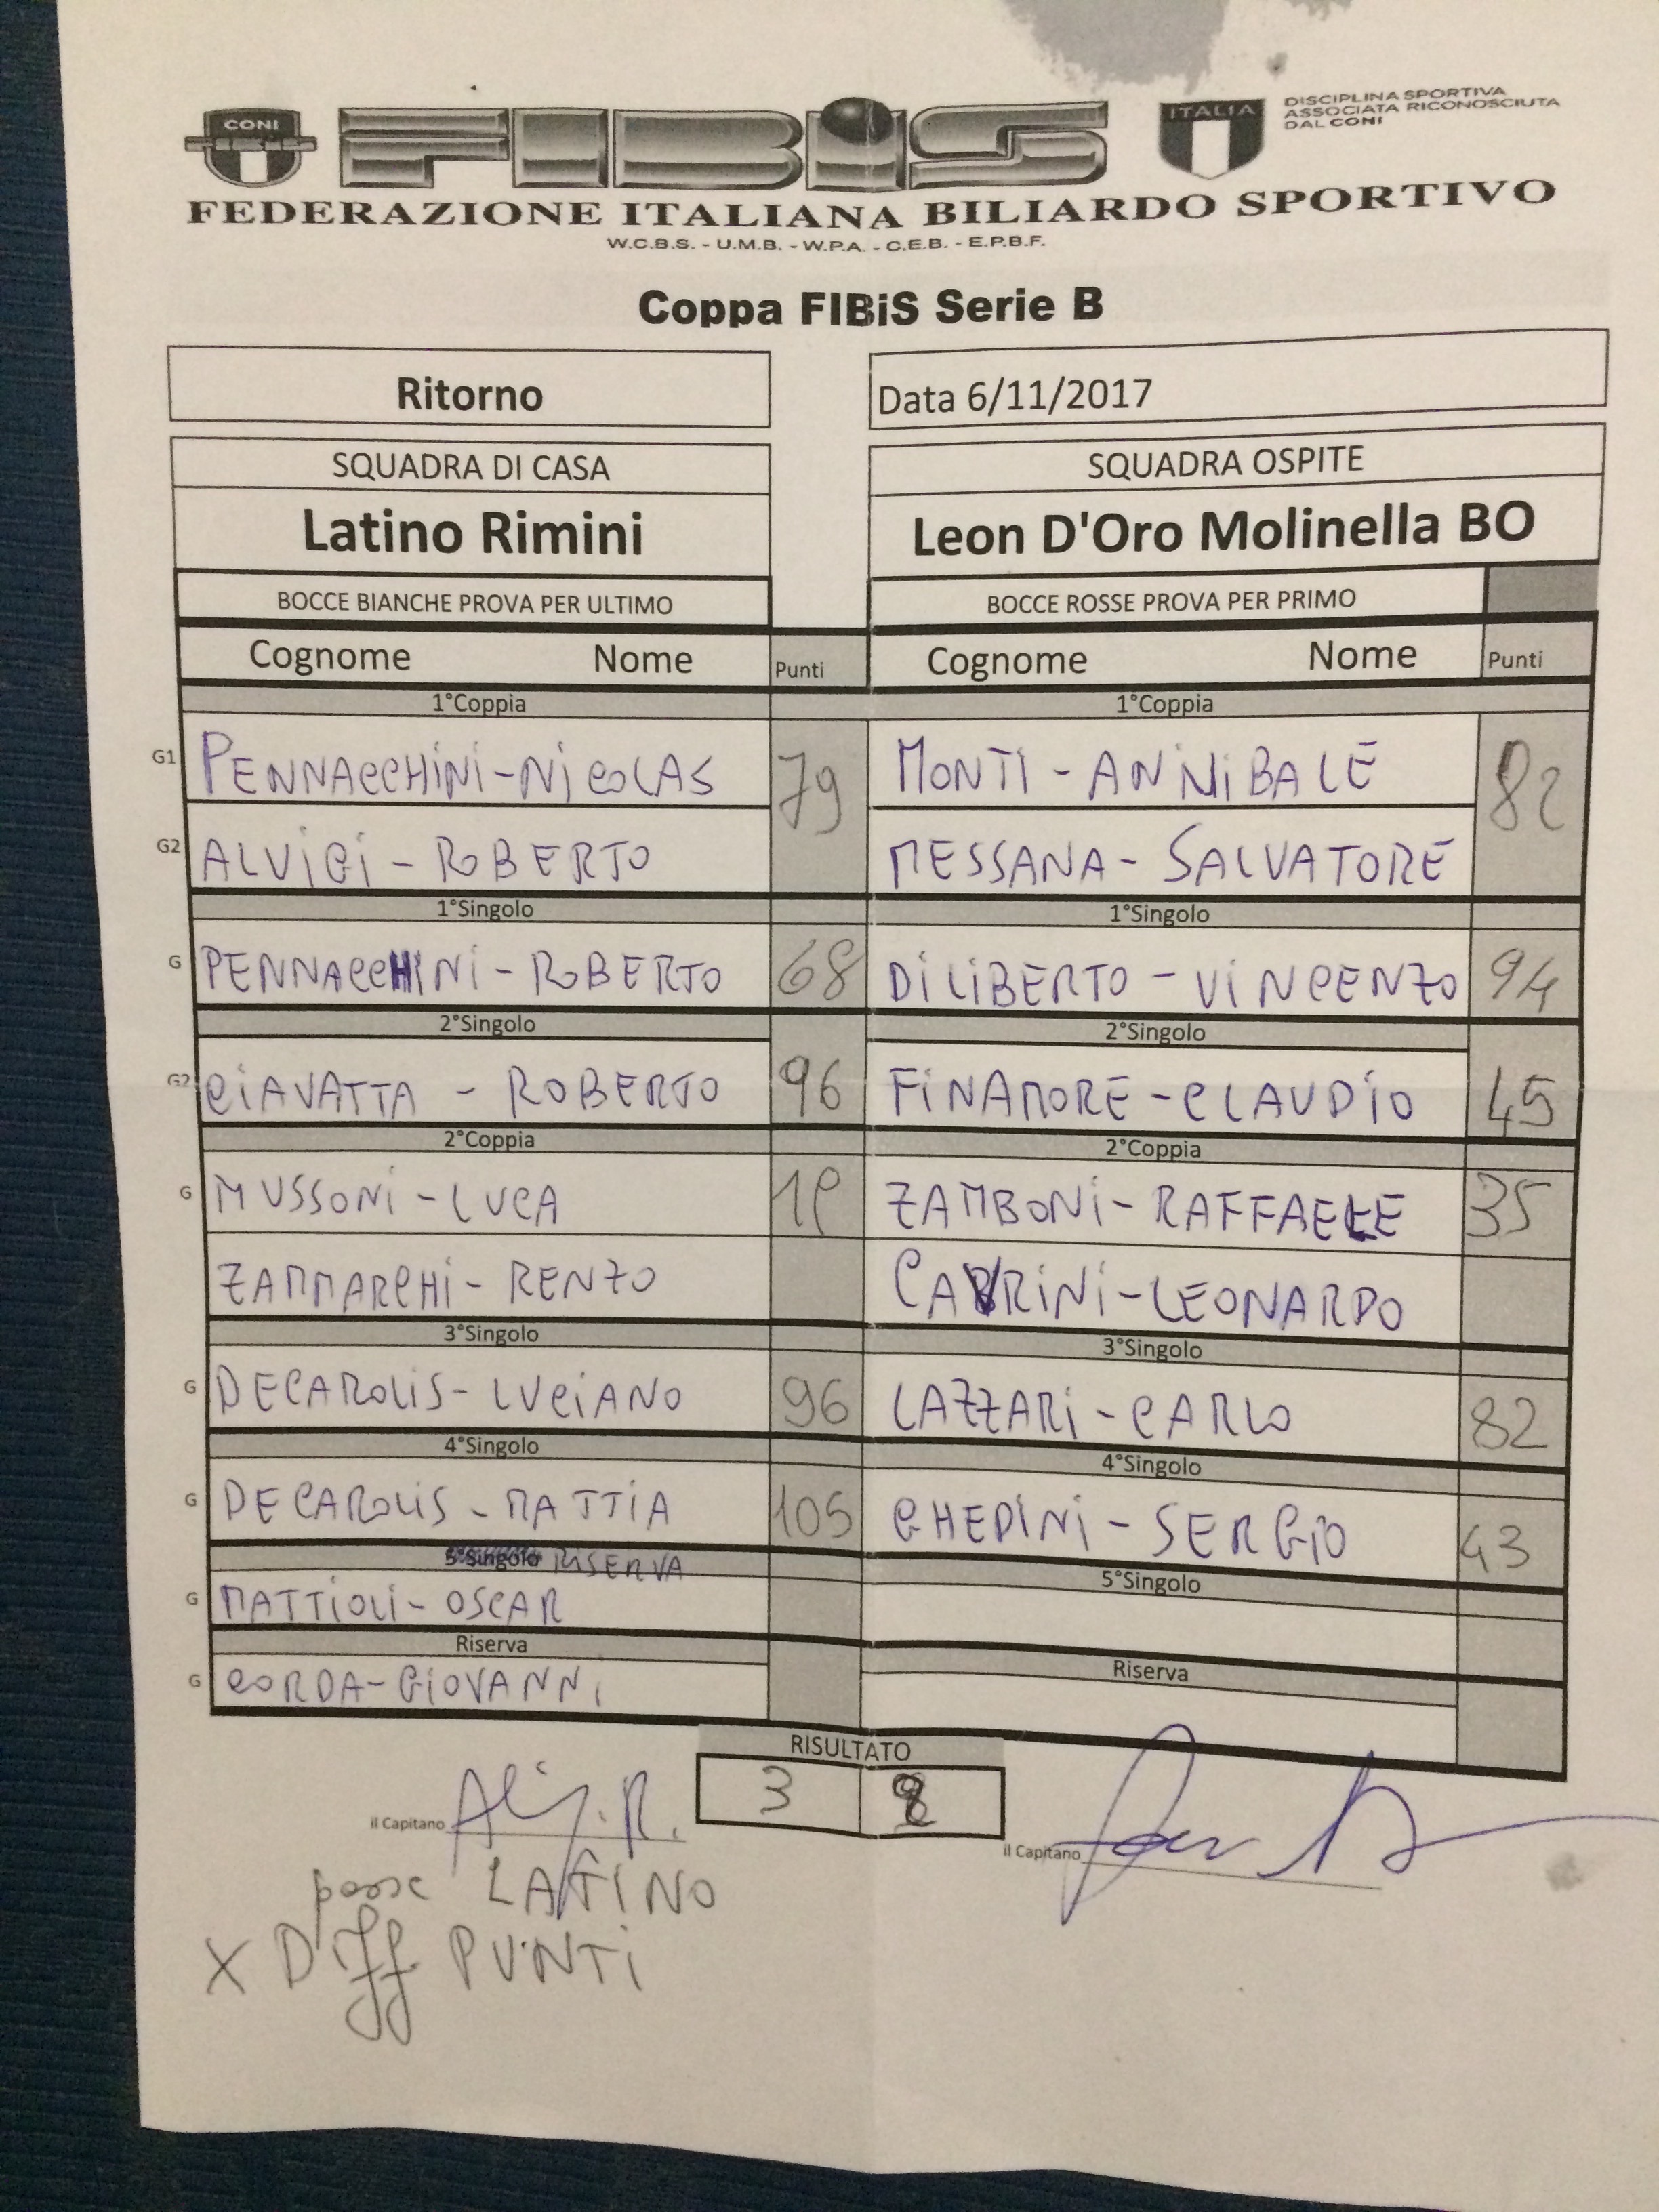 CONI
FIBiS
ITALIA
DISCIPLINA SPORTIVA
ASSOCIATA RICONOSCIUTA
DAL CONI
FEDERAZIONE ITALIANA BILIARDO SPORTIVO
W.C.B.S. - U.M.B. - W.P.A. - C.E.B. - E.P.B.F.
Coppa FIBiS Serie B
Ritorno Data 6/11/2017
SQUADRA DI CASA SQUADRA OSPITE
Latino Rimini Leon D'Oro Molinella BO
BOCCE BIANCHE PROVA PER ULTIMO BOCCE ROSSE PROVA PER PRIMO
Cognome Nome Punti Cognome Nome Punti
1°Coppia 1°Coppia
G1 PENNACCHiNi-NiCOLAS 79 MONTI - ANNiBALE 82
G2 ALVIGI - ROBERTO MESSANA - SALVATORE
1°Singolo 1°Singolo
G PENNACCHINI - ROBERTO 68 DiLiBERTO - ViNCENZO 94
2°Singolo 2°Singolo
G2 CiAVATTA - ROBERTO 96 FiNAMORE - CLAUDIO 45
2°Coppia 2°Coppia
G MUSSONi - LUCA ZAMBONi - RAFFAELE 35
ZAMMARCHi - RENZO CAVRiNi - LEONARDO
3°Singolo 3°Singolo
G DECAROLIS - LUCiANO 96 LAZZARi - CARLO 82
4°Singolo 4°Singolo
G DECAROLIS - MATTIA 105 GHEDINI - SERGIO 43
5°Singolo RISERVA 5°Singolo
G MATTIOLI - OSCAR
Riserva Riserva
G CORDA - GIOVANNi
RISULTATO
3
il Capitano il Capitano
passa LATINO
X Diff PUNTI